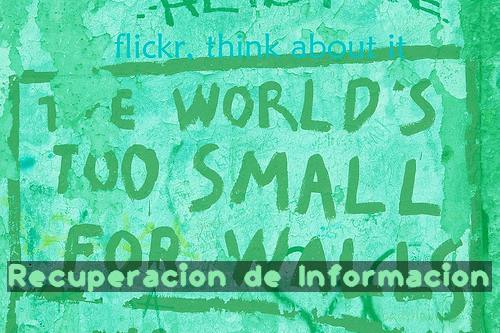 flickr, think about it
THE WORLD'S
TOO SMALL
FOR WALLS
Recuperacion de Informacion